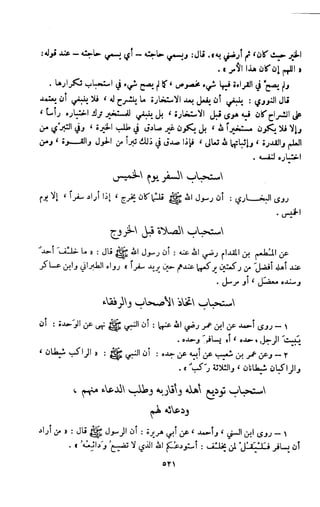 الخير حيث كان ثم أرضني به . قال : ويسمي حاجته - أي يسمي حاجته - عند قوله :
« اللهم إن كان هذا الأمر » .
ولم يصح في القراءة فيها شيء مخصوص ، كما لم يصح شيء في استحباب تكرارها .
قال النووي : ينبغي أن يفعل بعد الاستخارة ما ينشرح له ، فلا ينبغي أن يعتمد
على انشراح كان فيه هوى قبل الاستخارة ، بل ينبغي للمستخير ترك اختياره رأسا ،
وإلا فلا يكون مستخيرا لله ، بل يكون غير صادق في طلب الخيرة ، وفي التبري من
العلم والقدرة وإثباتهما لله تعالى ، فإذا صدق في ذلك تبرأ من الحول والقوة ، ومن
اختياره لنفسه .
استحباب السفر يوم الخميس
روى البخاري : أن رسول الله ﷺ قلما كان يخرج ، إذا أراد سفرا ، إلا يوم
الخميس .
استحباب الصلاة قبل الخروج
عن المطعم بن المقدام رضي الله عنه : أن رسول الله ﷺ قال : « ما خلف أحد
عند أهله أفضل من ركعتين يركعهما عندهم حين يريد سفرا » رواه الطبراني وابن عساكر
وسنده معضل ، أو مرسل .
استحباب اتخاذ الأصحاب والرفقاء
١ - روى أحمد عن ابن عمر رضي الله عنهما : أن النبي ﷺ نهى عن الوحدة : أن
يبيت الرجل وحده ، أو يسافر وحده .
٢ - وعن عمرو بن شعيب عن أبيه عن جده : أن النبي ﷺ : « الراكب شيطان ،
والراكبان شيطانان ، والثلاثة ركب » .
استحباب توديع أهله وأقاربه وطلب الدعاء منهم ،
ودعائه لهم
١ - روى ابن السني ، وأحمد ، عن أبي هريرة : أن الرسول ﷺ قال : « من أراد
أن يسافر فليقل لمن يخلف : أستودعكم الله الذي لا تضيع ودائعه » .
٥٢١